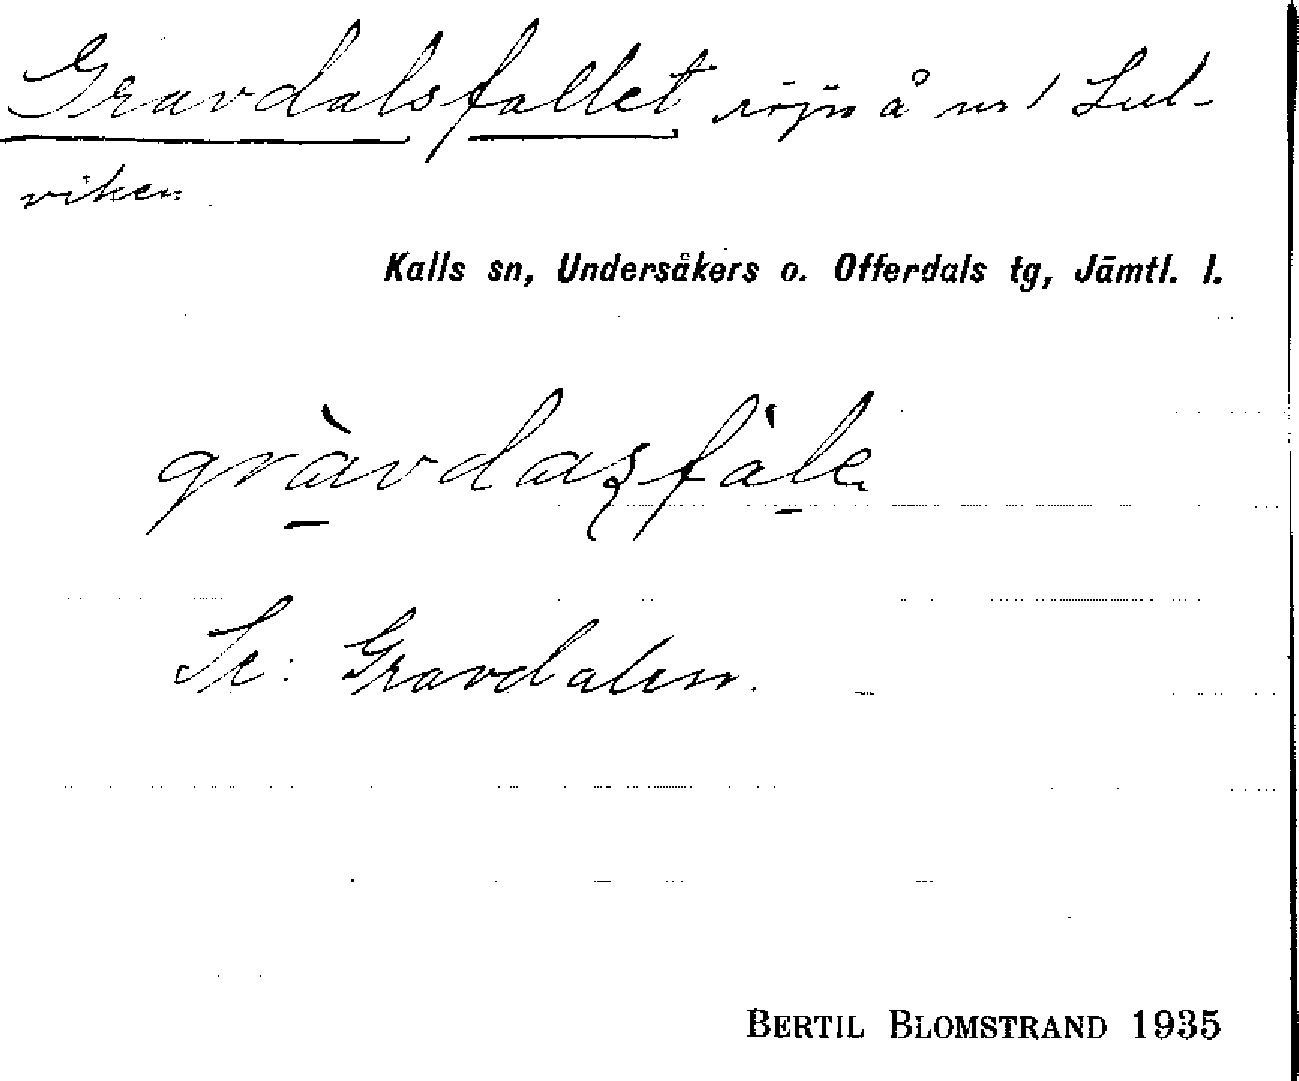 Gravdalsfallet röjn å nr 1 Sul-
viken
Kalls sn, Undersåkers o. Offerdals tg, Jämtl. l.
gràvdasfàle
Se: Gravdalen.
BERTIL BLOMSTRAND 1935